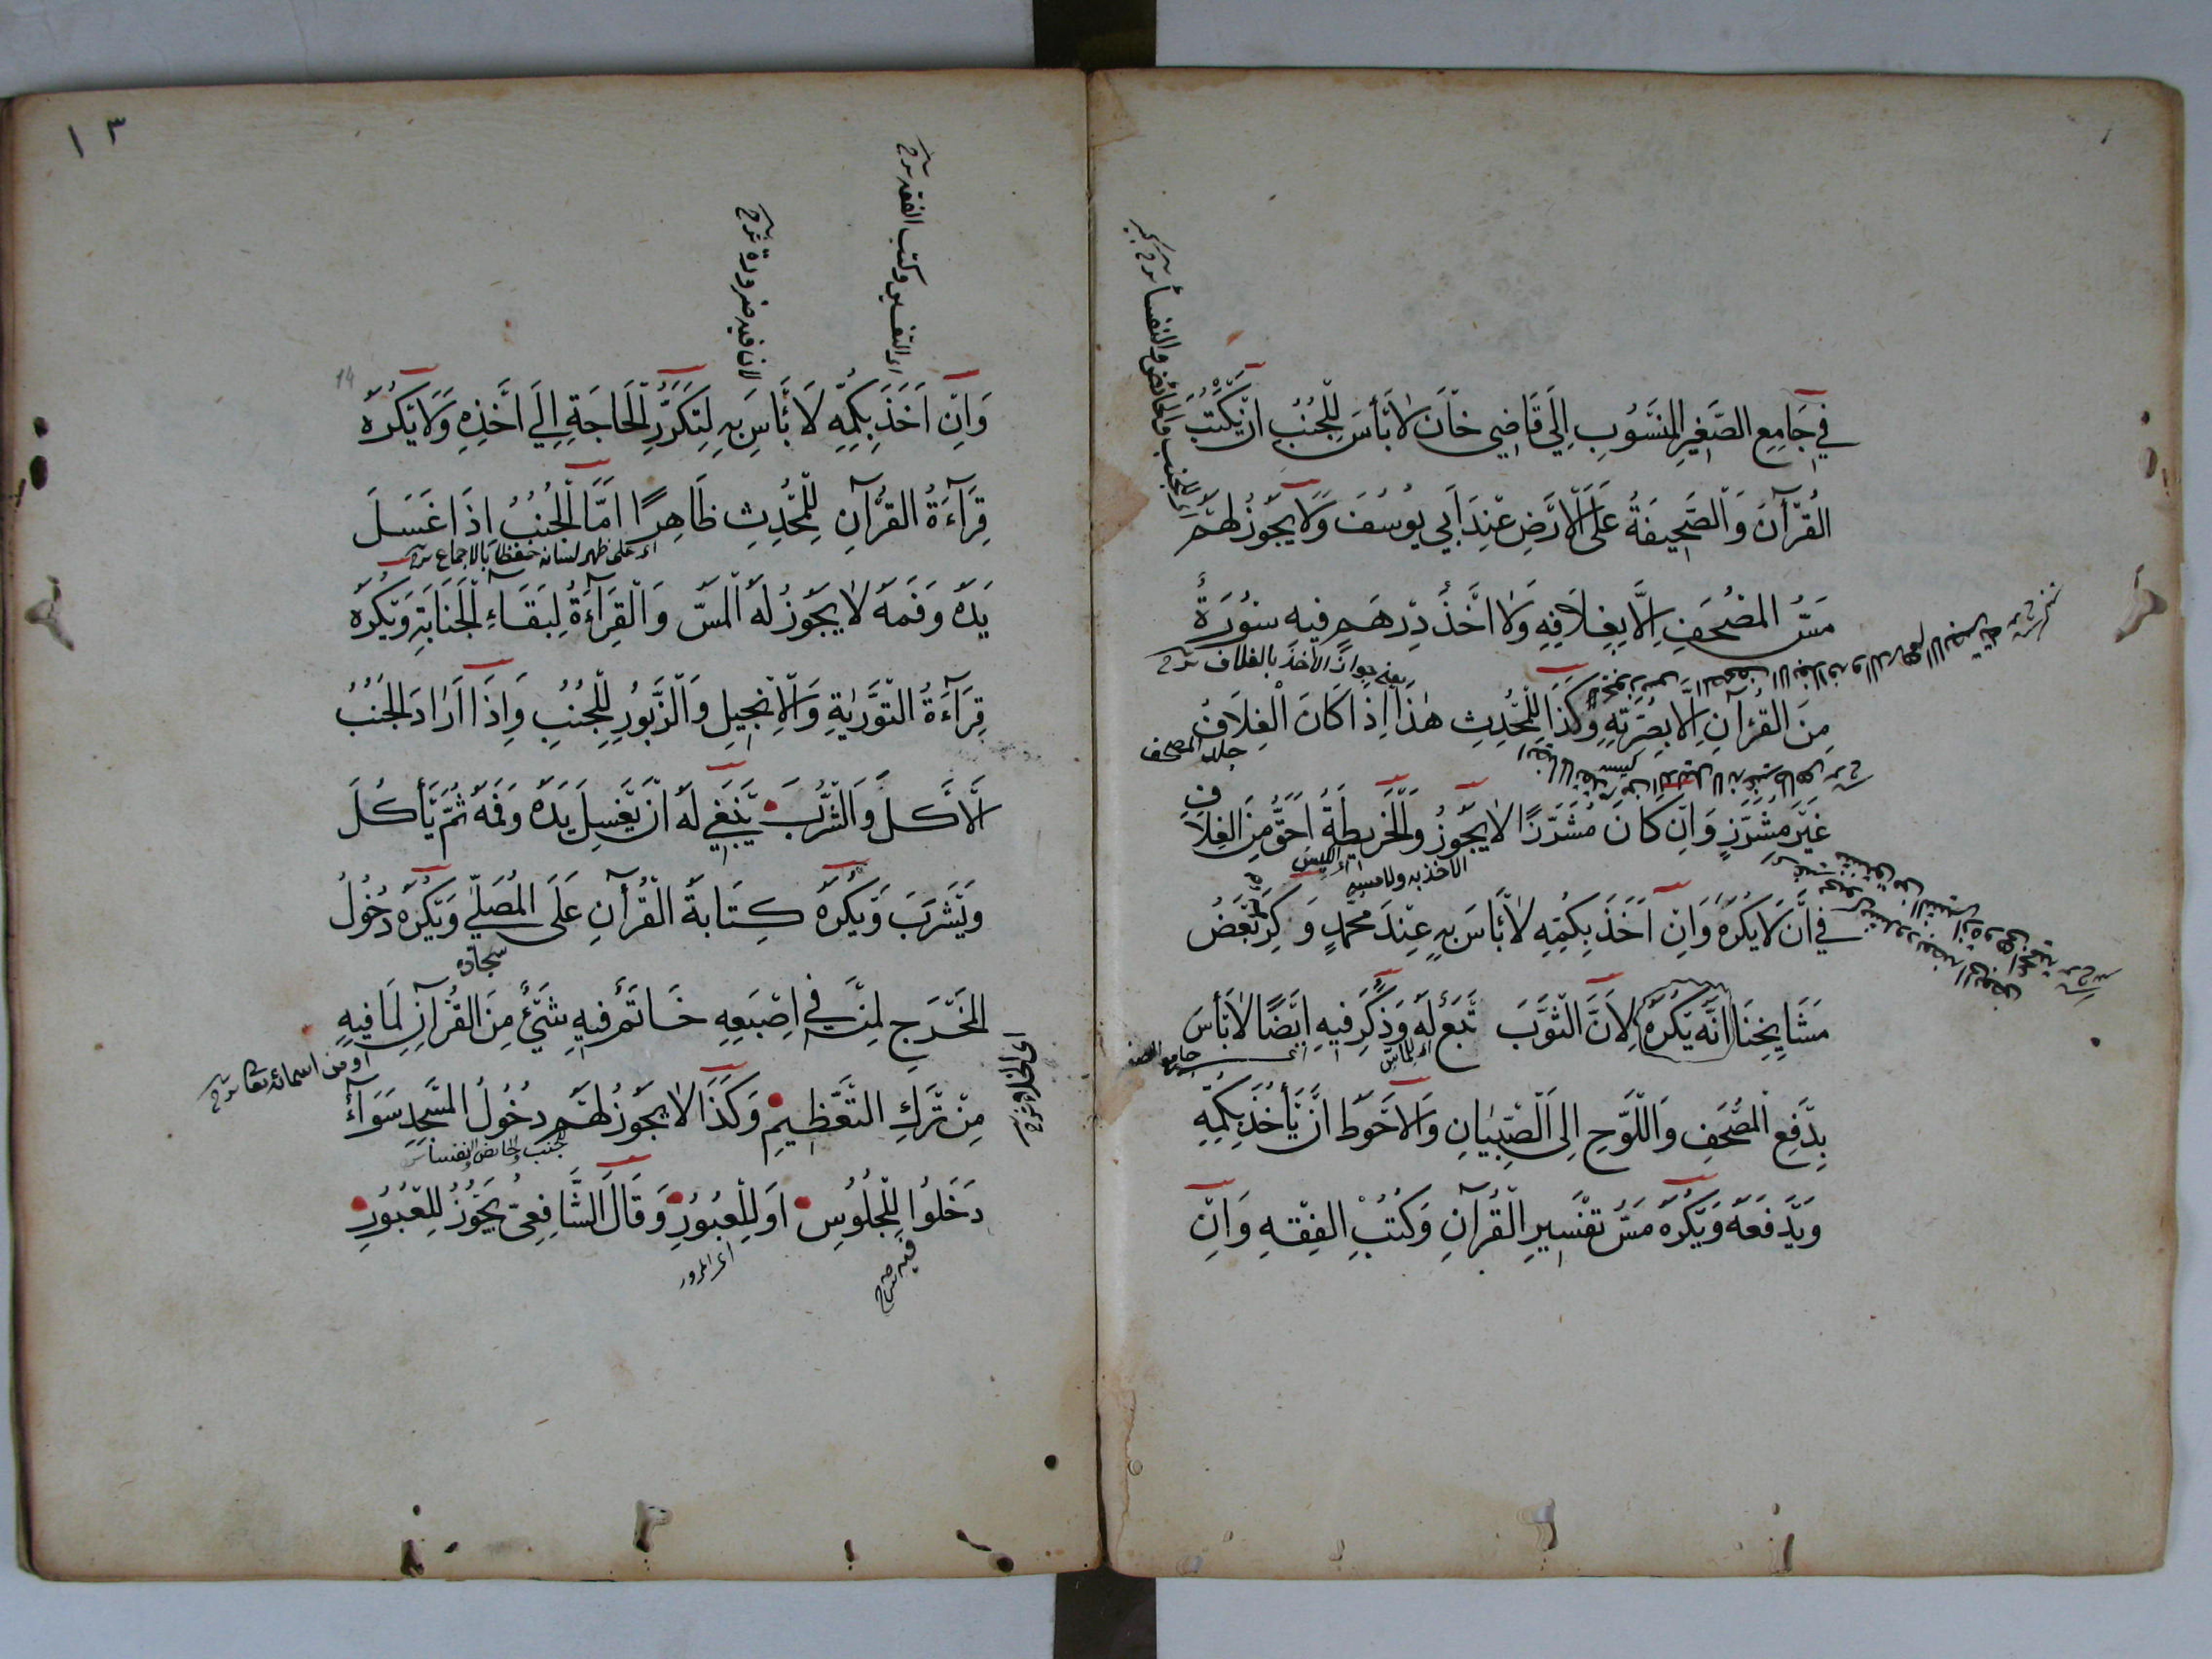 في جَامِعِ الصَّغِيرِ المَنْسُوبِ اِلَى قَاضِي خَانْ لَا بَأْسَ لِلْجُنُبِ اَنْ يَكْتُبَ
القُرْآنَ وَالصَّحِيفَةُ عَلَى الْاَرْضِ عِنْدَ اَبِي يُوسُفَ وَلَا يَجُوزُ لَهُمْ
اى للجنب والحائض والنفسأ
مَسُّ المُصْحَفِ اِلَّا بِغِلَافِهِ وَلَا اَخْذُ دِرْهَمٍ فِيهِ سُورَةٌ
يعنى جواز الأخذ بالغلاف شرح
مِنَ القُرْآنِ اِلَّا بِصُرَّتِهِ وَكَذَا لِلْمُحْدِثِ هٰذَا اِذَا كَانَ الْغِلَافُ
جلد المصحف
غَيْرَ مُشَرَّزٍ وَاِنْ كَانَ مُشَرَّزًا لَا يَجُوزُ وَالْخَرِيطَةُ اَحَقُّ مِنَ الْغِلَافِ
فِي اَنْ لَا يَكْرَهَ وَاِنْ اَخَذَ بِكُمِّهِ لَا بَأْسَ بِهِ عِنْدَ مُحَمَّدٍ وَكَرِهَ بَعْضُ
مَشَايِخِنَا اَنَّهُ يَكْرَهُ لِاَنَّ الثَّوْبَ تَبَعٌ لَهُ وَذُكِرَ فِيهِ اَيْضًا لَا بَأْسَ
بِدَفْعِ الْمُصْحَفِ وَاللَّوْحِ اِلَى الصِّبْيَانِ وَالْاَحْوَطُ اَنْ يَأْخُذَ بِكُمِّهِ
وَيَدْفَعَهُ وَيَكْرَهُ مَسُّ تَفْسِيرِ الْقُرْآنِ وَكُتُبِ الْفِقْهِ وَاِنْ
١٣
14
اى التفسير وكتب الفقه شرح
لان فيه ضرورة شرح
وَاِنْ اَخَذَ بِكُمِّهِ لَا بَأْسَ بِهِ لِتَكَرُّرِ الْحَاجَةِ اِلَى اَخْذِهِ وَلَا يَكْرَهُ
قِرَآءَةُ القُرْآنِ لِلْمُحْدِثِ ظَاهِرًا اَمَّا الْجُنُبُ اِذَا غَسَلَ
اى على ظهر لسانه حفظا بالاجماع
يَدَهُ وَفَمَهُ لَا يَجُوزُ لَهُ الْمَسُّ وَالْقِرَآءَةُ لِبَقَاءِ الْجَنَابَةِ وَيَكْرَهُ
قِرَآءَةُ التَّوْرٰيةِ وَالْاِنْجِيلِ وَالزَّبُورِ لِلْجُنُبِ وَاِذَا اَرَادَ الْجُنُبُ
الْاَكْلَ وَالشُّرْبَ يَنْبَغِي لَهُ اَنْ يَغْسِلَ يَدَهُ وَفَمَهُ ثُمَّ يَأْكُلَ
وَيَشْرَبَ وَيَكْرَهُ كِتَابَةُ الْقُرْآنِ عَلَى الْمُصَلَّى وَيَكْرَهُ دُخُولُ
سجاده
الْمَخْرَجِ لِمَنْ فِي اِصْبَعِهِ خَاتَمٌ فِيهِ شَيْءٌ مِنَ الْقُرْآنِ لِمَا فِيهِ
او من اسمائه تعالى شرح
مِنْ تَرْكِ التَّعْظِيمِ وَكَذَا لَا يَجُوزُ لَهُمْ دُخُولُ الْمَسْجِدِ سَوَآءٌ
للجنب والحائض والنفساء
دَخَلُوا لِلْجُلُوسِ اَوْ لِلْعُبُورِ وَقَالَ الشَّافِعِيُّ يَجُوزُ لِلْعُبُورِ
فيه شرح
اى المرور